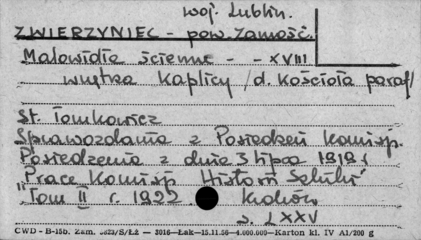 woj. Lublin.
ZWIERZYNIEC - pow. Zamość.
Malowidła ścienne - - XVIII
wnętrza Kaplicy /d. Kościoła paraf/
St. Tomkowicz
Sprawozdania z Posiedzeń Komisp.
Posiedzenia z dnia 3 lipca 1919 r
"Prace Komisp Historii Sztuki"
Tom II r. 1922. Kraków
s. LXXV
CWD - B-15b. Zam. S/Łż — 3016—Łak—15.11.56—4.000.000—Karton kl. IV A1/200 g